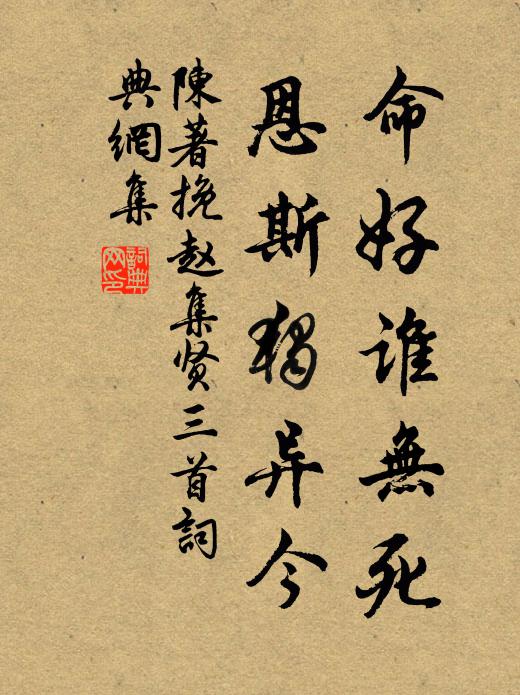 命好谁無死
恩斯獨异今
陳著挽赵集贤三首詞
典網集
詞典
网印